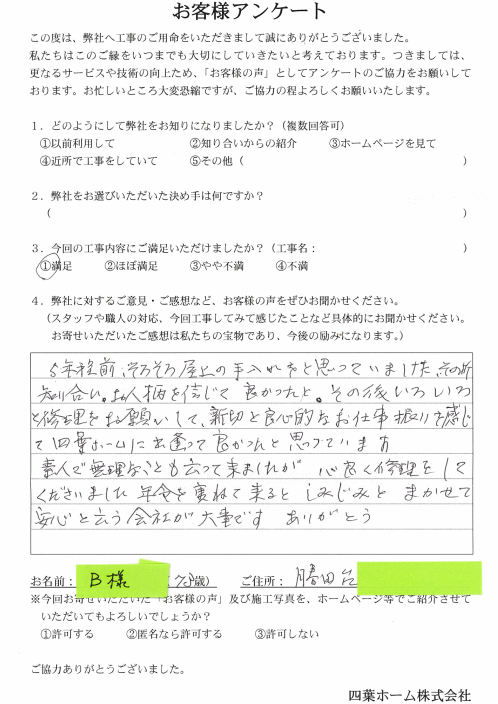 お客様アンケート
この度は、弊社へ工事のご用命をいただきまして誠にありがとうございました。
私たちはこのご縁をいつまでも大切にしていきたいと考えております。つきましては、
更なるサービスや技術の向上ため、「お客様の声」としてアンケートのご協力をお願いして
おります。お忙しいところ大変恐縮ですが、ご協力の程よろしくお願いいたします。
1．どのようにして弊社をお知りになりましたか？（複数回答可）
①以前利用して ②知り合いからの紹介 ③ホームページを見て
④近所で工事をしていて ⑤その他（ ）
2．弊社をお選びいただいた決め手は何ですか？
（ ）
3．今回の工事内容にご満足いただけましたか？（工事名： ）
①満足 ②ほぼ満足 ③やや不満 ④不満
4．弊社に対するご意見・ご感想など、お客様の声をぜひお聞かせください。
（スタッフや職人の対応、今回工事してみて感じたことなど具体的にお聞かせください。
お寄せいただいたご感想は私たちの宝物であり、今後の励みになります。）
5年程前、そろそろ屋上の手入れをと思っていました、その折
知り合い。お人柄を信じて良かったと。その後いろいろ
と修理をお願いして、親切と良心的なお仕事振りを感じ
て四葉ホームに出逢って良かったと思っています
素人で無理なことも云って来ましたが 心良く修理をして
くださいました 年令を重ねて来ると しみじみと まかせて
安心と云う会社が大事です ありがとう
お名前： B様 （ 歳） ご住所： 勝田台
※今回お寄せいただいた「お客様の声」及び施工写真を、ホームページ等でご紹介させて
いただいてもよろしいでしょうか？
①許可する ②匿名なら許可する ③許可しない
ご協力ありがとうございました。
四葉ホーム株式会社